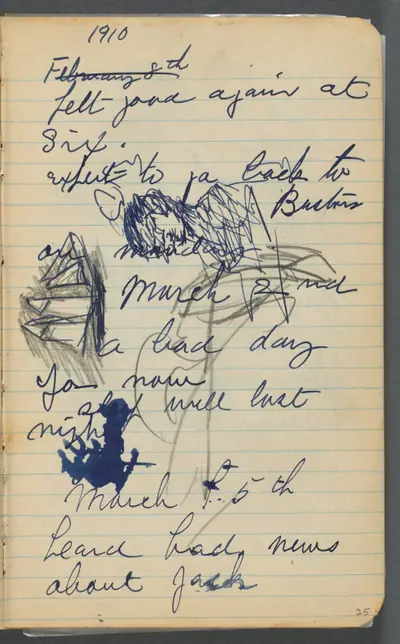 1910
February 8th
felt good again at
six.
expect to go back to
Boston
on monday
March 2nd
a bad day
for now
slept well last
night
March 5th
heard bad news
about Jack
25